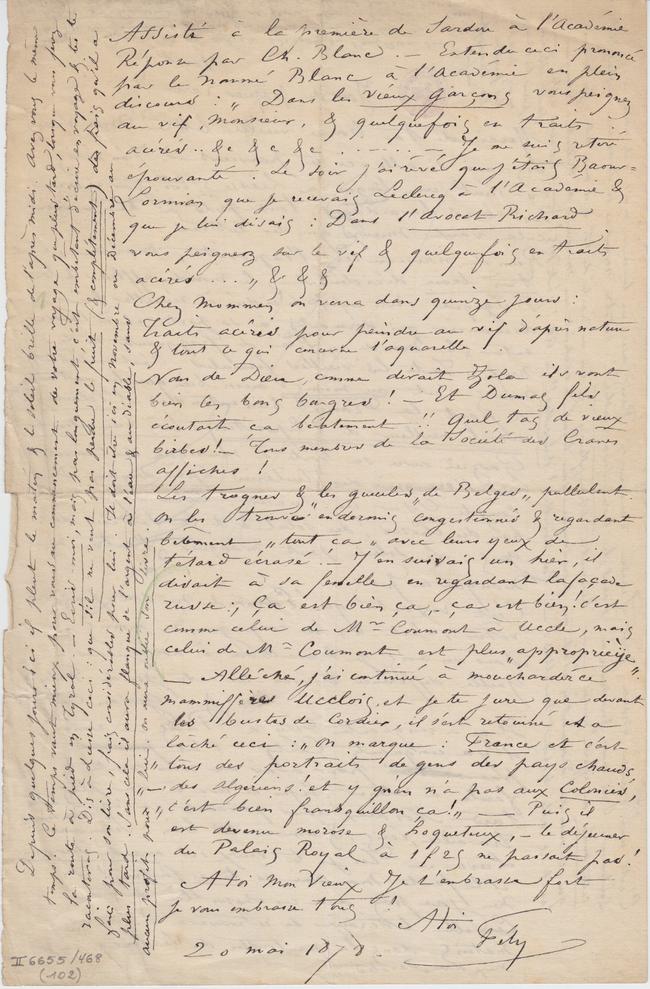 Assisté à la première de Sardou à l'Académie
Réponse par Ch. Blanc. — Entendu ceci prononcé
par le nommé Blanc à l'Académie en plein
discours : „ Dans les vieux garçons vous peignez
au vif, Monsieur, & quelquefois en traits
acérés .. &c &c &c ...... — Je me suis retiré
épouvanté. Le soir j'ai rêvé que j'étais Baour-
Lormian, que je recevais Leclercq à l'Académie &
que je lui disais : Dans l'avocat Richard
vous peignez sur le vif & quelquefois en traits
acérés ... „ & & &
Chez Mommen on verra dans quinze jours :
Traits acérés pour peindre au vif d'après nature
& tout ce qui concerne l'aquarelle.
Nom de Dieu, comme dirait Zola ils vont
bien les bons bougres ! — Et Dumas fils
écoutait ça bêtement !! Quel tas de vieux
birbes ! — Tous membres de la Société des Crânes
affichés !
Les trognes & les gueules „de Belges„ pullulent.
On les trouve endormis congestionnés & regardant
bêtement „tout ça„ avec leurs yeux de
têtard écrasé ! — J'en suivais un hier, il
disait à sa femelle en regardant la façade
russe : „ Ça est bien ça, — ça est bien ! c'est
comme celui de Mr Coumont à Uccle, mais
celui de Mr Coumont est plus „appropriëije„
— Alléché, j'ai continué à moucharder ce
mammifère Ucclois, et je te jure que devant
les bustes de Cordier, il s'est retourné et a
lâché ceci : „ On marque : France et c'est
„ tous des portraits de gens des pays chauds,
„ des algériens ! et y qu'on n'a pas aux Colonies,
„ c'est bien fransquillon ça ! „ — Puis il
est devenu morose & hoqueteux, — le déjeuner
du Palais Royal à 1f25 ne passait pas !
A toi mon vieux Je t'embrasse fort
je vous embrasse tous !
A toi
Fély
20 mai 1878.
Depuis quelques jours ici il pleut le matin & le soleil brille l'après midi. Avez vous le même
temps ? Ce temps vaut mieux pour vous au commencement de votre voyage que plus tard, lorsque vous ferez
la route à pied en Tyrol. — Ecris moi, mais pas longuement c'est embêtant d'écrire en voyage & tu te
raconteras. Dis à
fait pour son livre, frais considérables pour lui. Je dois être ici en novembre ou décembre au
plus tard. Sans cela il aura flanqué de l'argent à l'eau & au diable, sans
aucun profit pour lui
II 6655/468
(102)